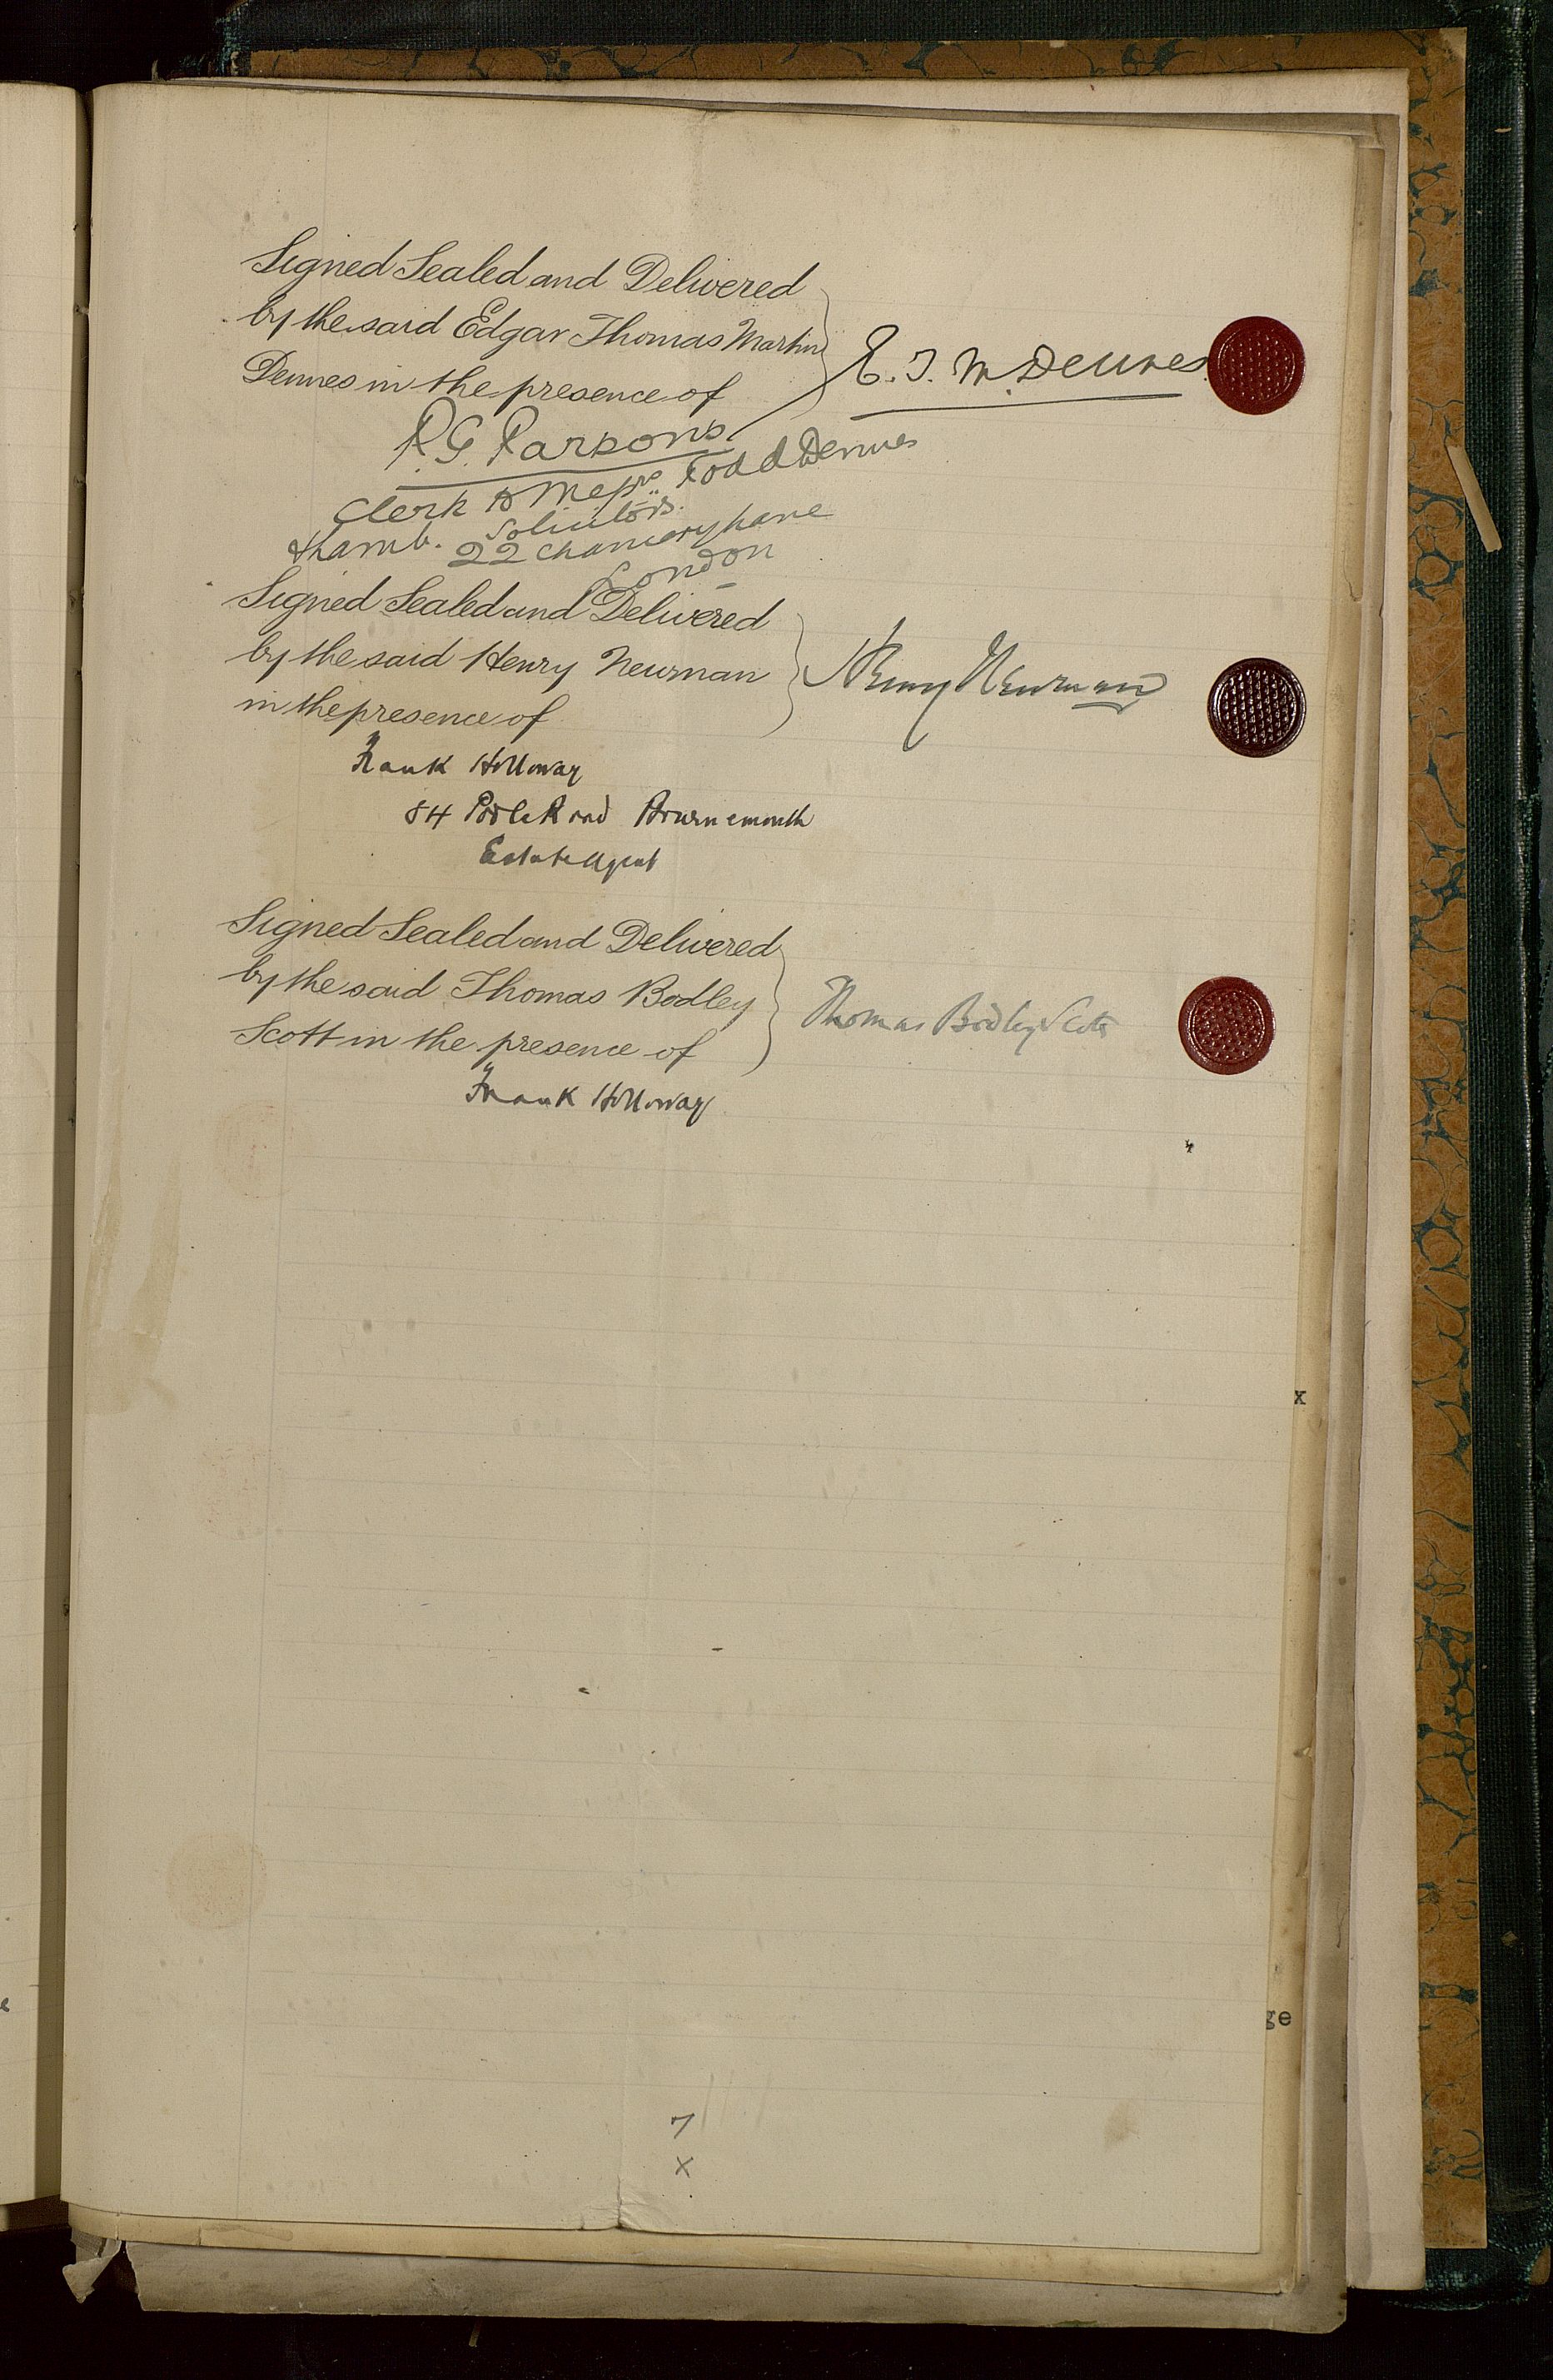 Signed Sealed and Delivered
by the said Edgar Thomas Martin
Dennes in the presence of
E. T. M. Dennes
R. G. Parsons
Clerk to Messrs. Todd Dennes
& Lamb. Solicitors.
22 Chancery Lane
London
Signed Sealed and Delivered
by the said Henry Newman
in the presence of
Henry Newman
Frank Holloway
84 Poole Road Bournemouth
Estate Agent
Signed Sealed and Delivered
by the said Thomas Bodley
Scott in the presence of
Thomas Bodley Scott
Frank Holloway
x
ge
7
x